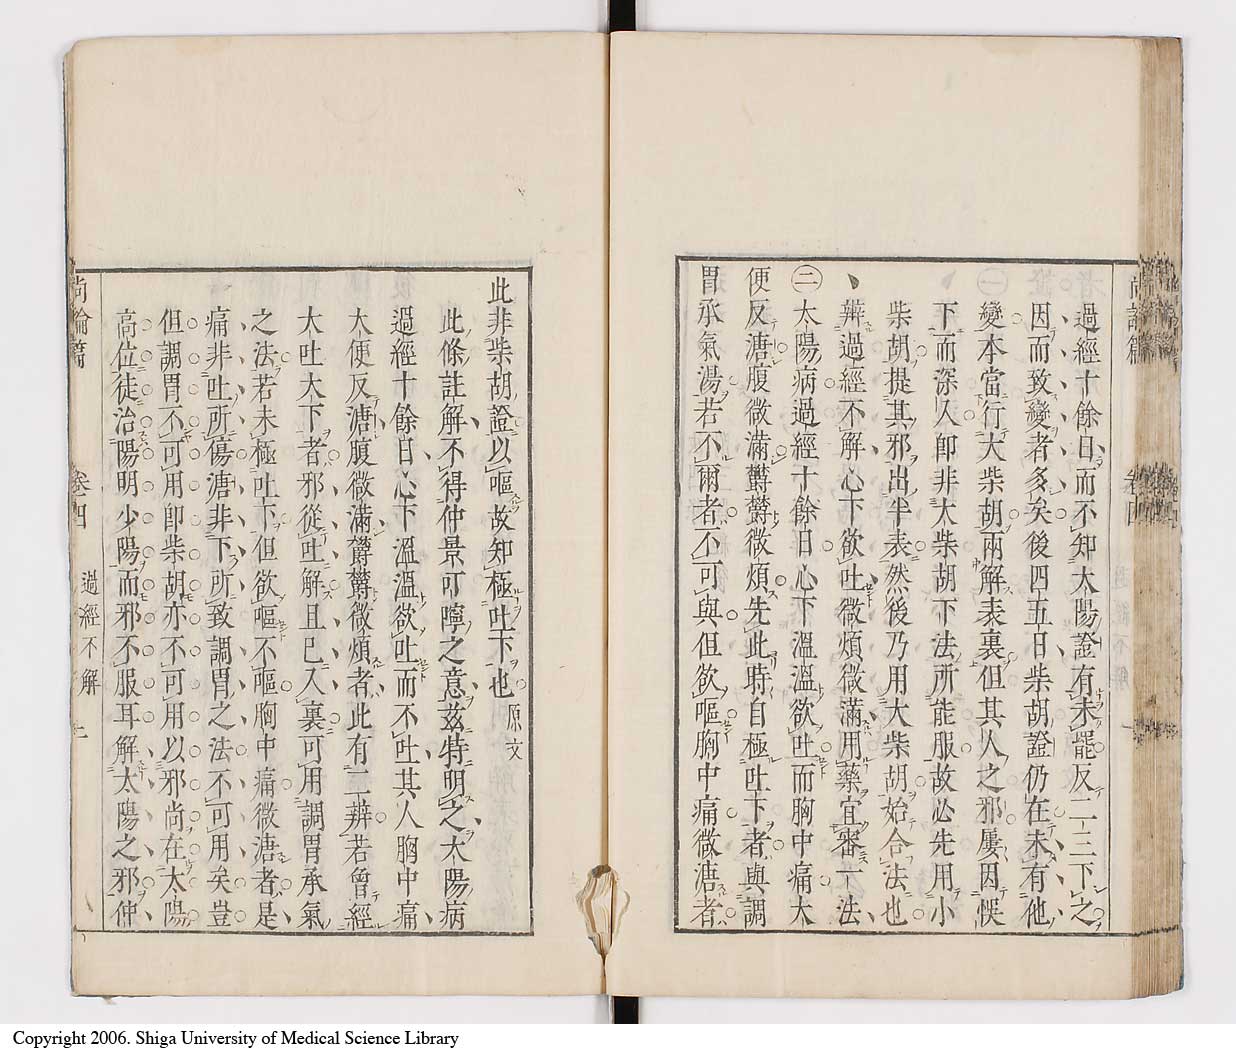 過經十餘日而不知太陽證有未罷反二三下之
因而致變者多矣後四五日柴胡證仍在未有他
㊀變本當行大柴胡兩解表裏但其人之邪屢因悞
下而深入卽非大柴胡下法所能服故必先用小
柴胡提其邪出半表然後乃用大柴胡始合法也
辨過經不解心下欲吐微煩微滿用藥宜審一法
㊁太陽病過經十餘日心下溫溫欲吐而胸中痛大
便反溏腹微滿欝欝微煩先此時自極吐下者與調
胃承氣湯若不爾者不可與但欲嘔胸中痛微溏者
此非柴胡證以嘔故知極吐下也原文
此條註解不得仲景叮嚀之意茲特明之太陽病
過經十餘日心下溫溫欲吐而不吐其人胸中痛
大便反溏腹微滿欝欝微煩者此有二辨若曾經
大吐大下者邪從吐解且已入裏可用調胃承氣
之法若未極吐下但欲嘔不嘔胸中痛微溏者是
痛非吐所傷溏非下所致調胃之法不可用矣豈
但調胃不可用卽柴胡亦不可用以邪尚在太陽
高位徒治陽明少陽而邪不服耳解太陽之邪仲
尚論篇 卷四 過經不解 二
Copyright 2006. Shiga University of Medical Science Library